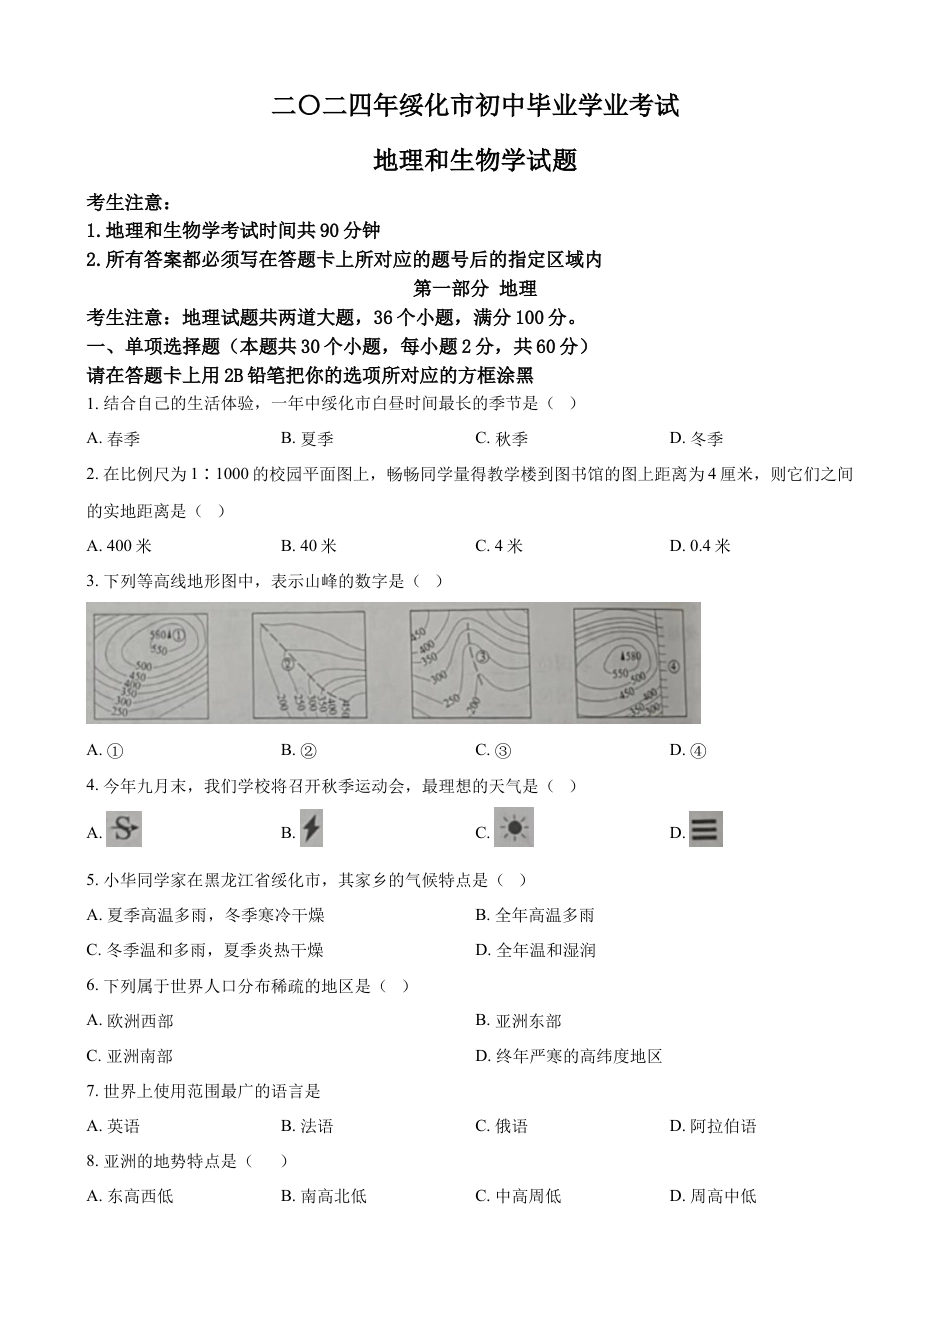 二〇二四年绥化市初中毕业学业考试
地理和生物学试题
考生注意：
1.地理和生物学考试时间共90分钟
2.所有答案都必须写在答题卡上所对应的题号后的指定区域内
第一部分 地理
考生注意：地理试题共两道大题，36个小题，满分100分。
一、单项选择题（本题共30个小题，每小题2分，共60分）
请在答题卡上用2B铅笔把你的选项所对应的方框涂黑
1. 结合自己的生活体验，一年中绥化市白昼时间最长的季节是（ ）
A. 春季 B. 夏季 C. 秋季 D. 冬季
2. 在比例尺为1∶1000的校园平面图上，畅畅同学量得教学楼到图书馆的图上距离为4厘米，则它们之间
的实地距离是（ ）
A. 400米 B. 40米 C. 4米 D. 0.4米
3. 下列等高线地形图中，表示山峰的数字是（ ）
580 ① 550 500 450 400 350 300 250
② 200 250 300 350 400 450
450 400 350 300 250 200 ③
580 550 500 450 400 350 300 ④
A. ① B. ② C. ③ D. ④
4. 今年九月末，我们学校将召开秋季运动会，最理想的天气是（ ）
A. B. C. D.
5. 小华同学家在黑龙江省绥化市，其家乡的气候特点是（ ）
A. 夏季高温多雨，冬季寒冷干燥 B. 全年高温多雨
C. 冬季温和多雨，夏季炎热干燥 D. 全年温和湿润
6. 下列属于世界人口分布稀疏的地区是（ ）
A. 欧洲西部 B. 亚洲东部
C. 亚洲南部 D. 终年严寒的高纬度地区
7. 世界上使用范围最广的语言是
A. 英语 B. 法语 C. 俄语 D. 阿拉伯语
8. 亚洲的地势特点是（ ）
A. 东高西低 B. 南高北低 C. 中高周低 D. 周高中低